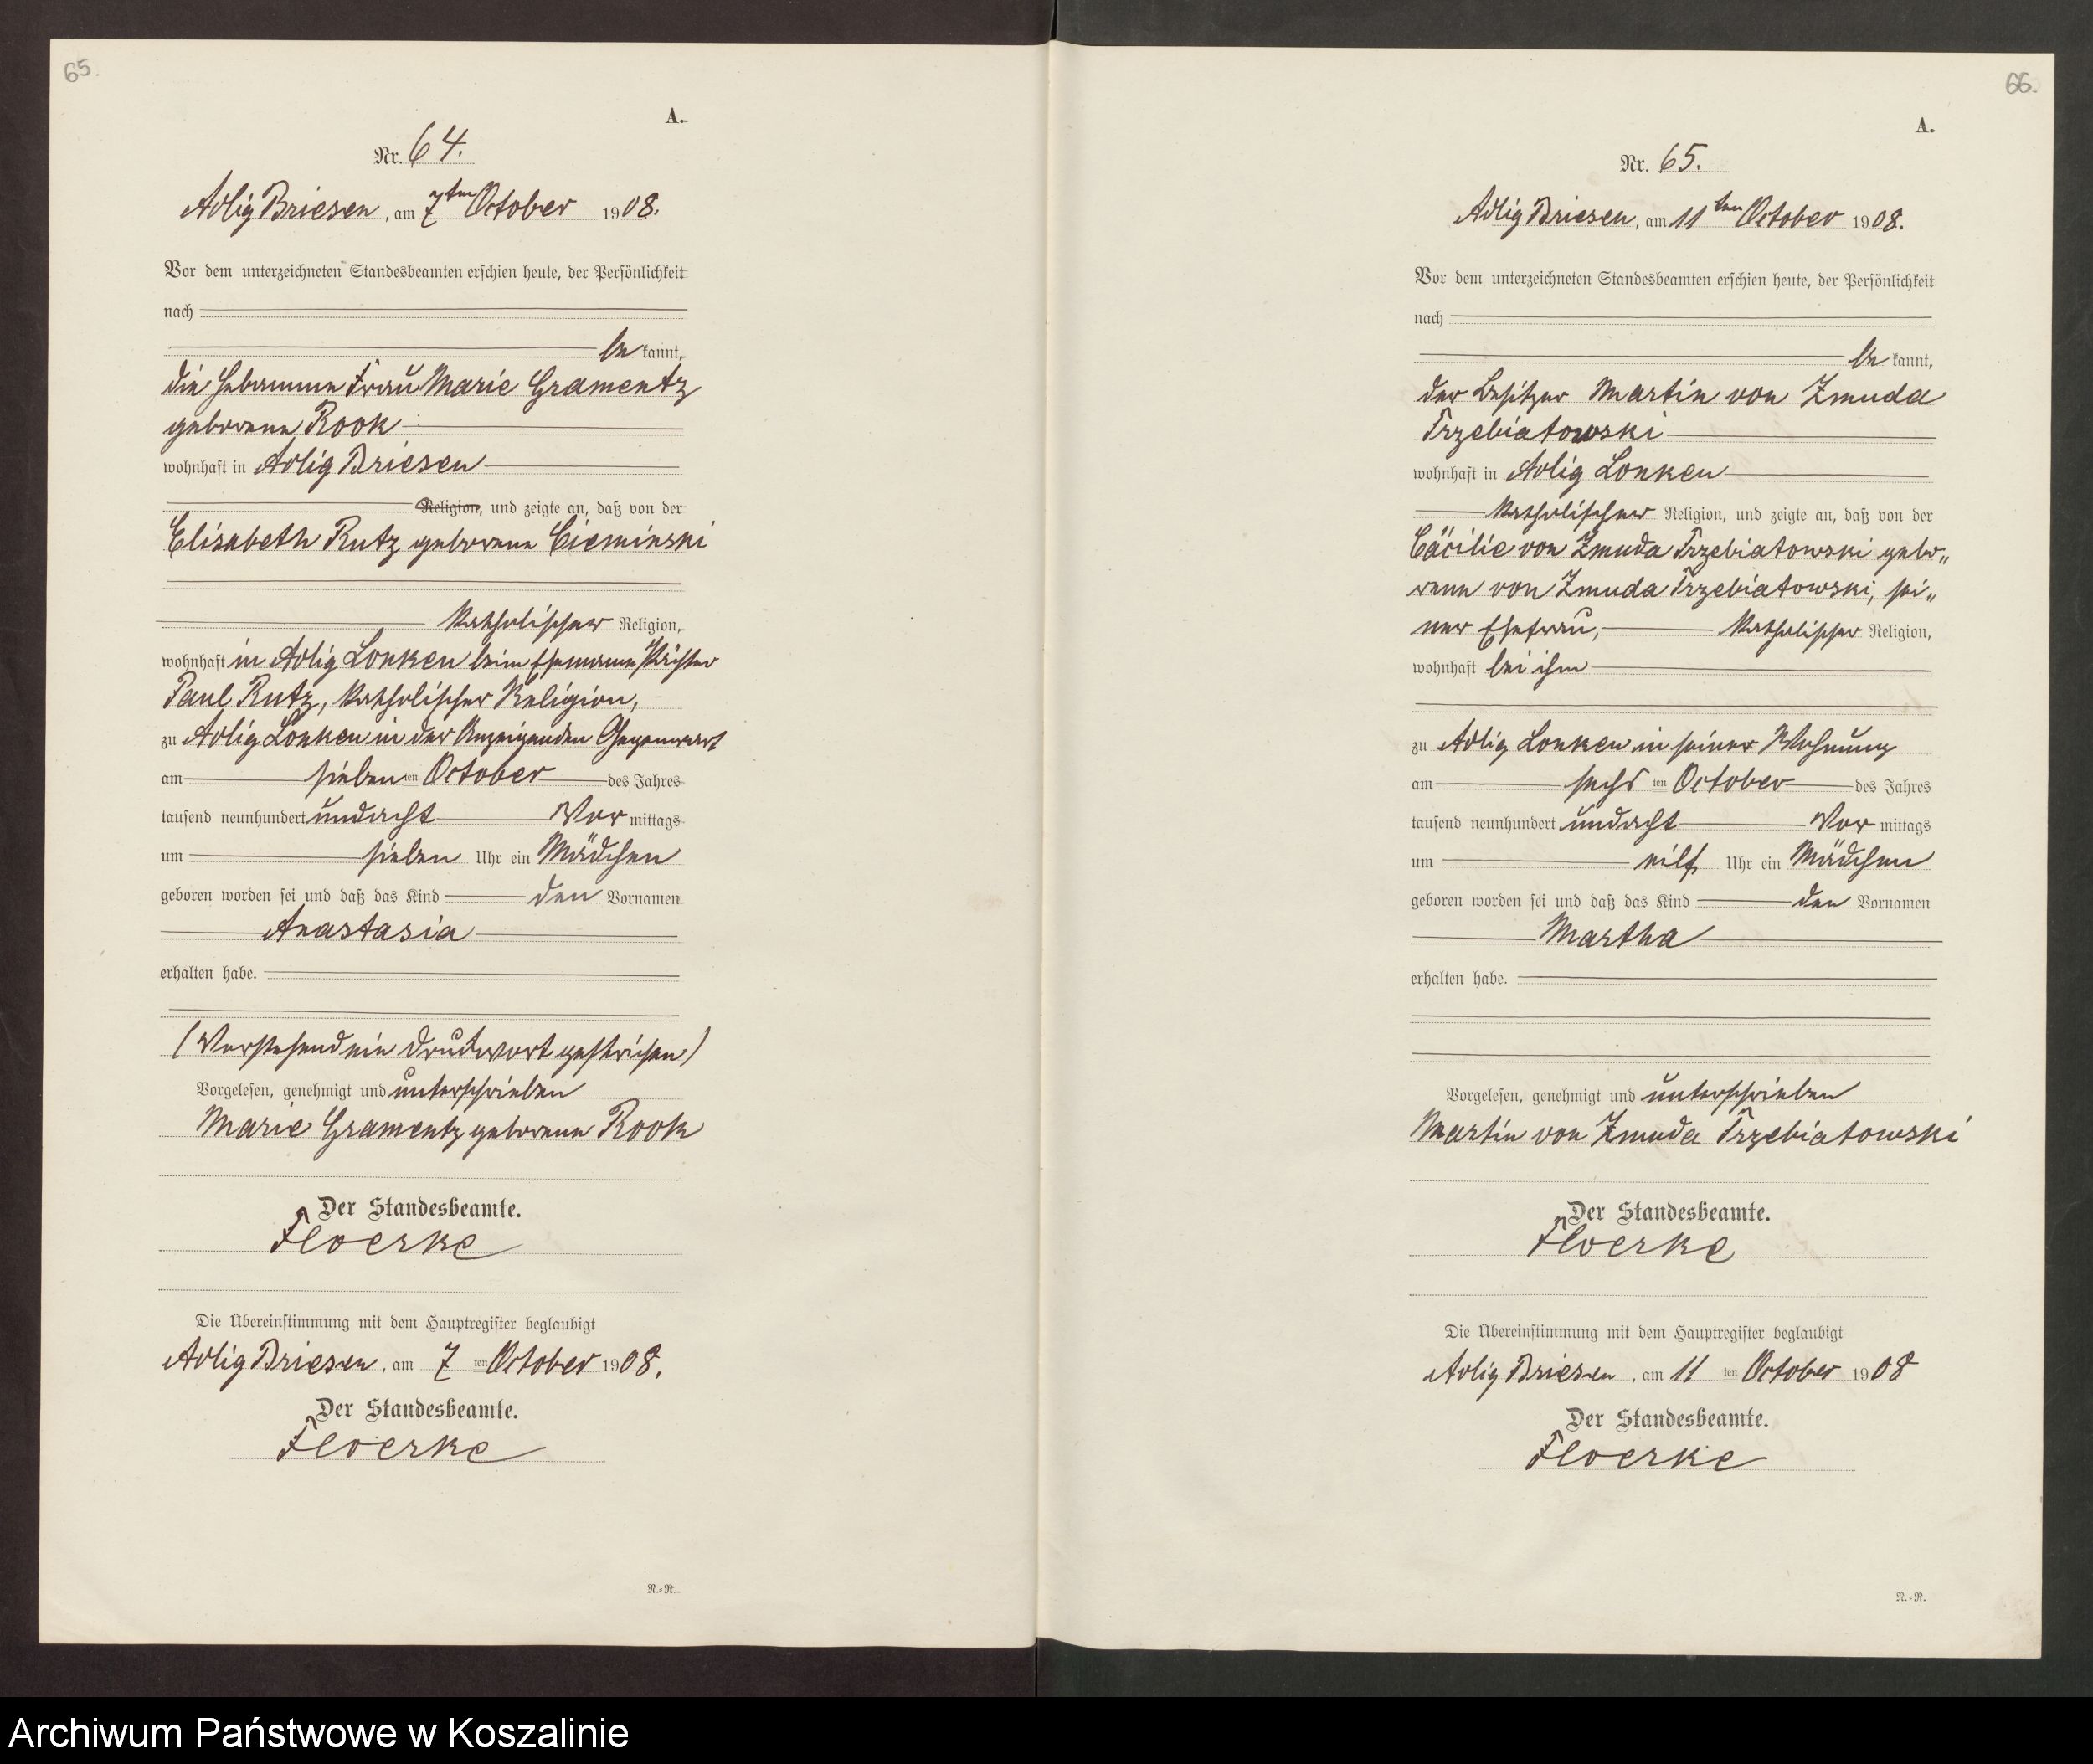 65.
A.
Nr. 64.
Adlig Briesen, am 7ten October 1908.
Vor dem unterzeichneten Standesbeamten erschien heute, der Persönlichkeit
nach
be kannt,
die Hebamme Frau Marie Gramentz
geborene Rook
wohnhaft in Adlig Briesen
Religion, und zeigte an, daß von der
Elisabeth Rutz geborene Cieminski
katholischer Religion,
wohnhaft in Adlig Lonken beim Ehemanne Pächter
Paul Rutz, katholischer Religion,
zu Adlig Lonken in der Anzeigenden Gegenwart
am sieben ten October des Jahres
tausend neunhundert undacht Vor mittags
um sieben Uhr ein Mädchen
geboren worden sei und daß das Kind den Vornamen
Anastasia
erhalten habe.
(Vorstehend ein Druckwort gestrichen)
Vorgelesen, genehmigt und unterschrieben
Marie Gramentz geborene Rook
Der Standesbeamte.
Floerke
Die Übereinstimmung mit dem Hauptregister beglaubigt
Adlig Briesen, am 7 ten October 1908.
Der Standesbeamte.
Floerke
R.=R.
66.
A.
Nr. 65.
Adlig Briesen, am 11ten October 1908.
Vor dem unterzeichneten Standesbeamten erschien heute, der Persönlichkeit
nach
be kannt,
der Besitzer Martin von Zmuda
Trzebiatowski
wohnhaft in Adlig Lonken
katholischer Religion, und zeigte an, daß von der
Cäcilie von Zmuda Trzebiatowski gebo„
rene von Zmuda Trzebiatowski, sei„
ner Ehefrau, katholischer Religion,
wohnhaft bei ihm
zu Adlig Lonken in seiner Wohnung
am sechs ten October des Jahres
tausend neunhundert undacht Vor mittags
um eilf Uhr ein Mädchen
geboren worden sei und daß das Kind den Vornamen
Martha
erhalten habe.
Vorgelesen, genehmigt und unterschrieben
Martin von Zmuda Trzebiatowski
Der Standesbeamte.
Floerke
Die Übereinstimmung mit dem Hauptregister beglaubigt
Adlig Briesen, am 11 ten October 1908
Der Standesbeamte.
Floerke
R.=R.
Archiwum Państwowe w Koszalinie